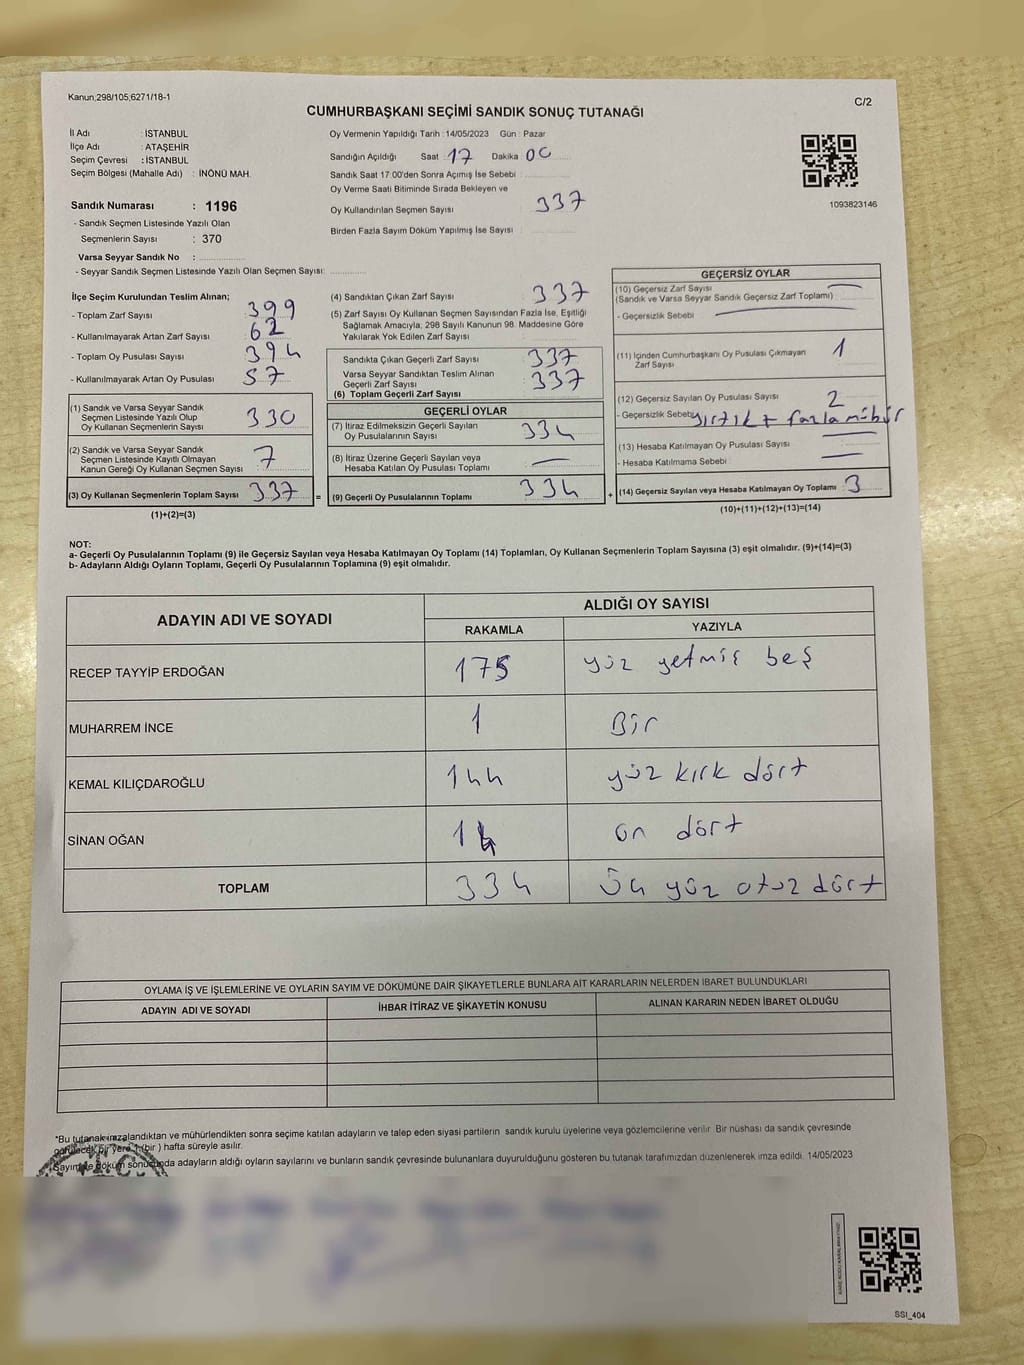 Kanun;298/105;6271/18-1
C/2
CUMHURBAŞKANI SEÇİMİ SANDIK SONUÇ TUTANAĞI
İl Adı : İSTANBUL
İlçe Adı : ATAŞEHİR
Seçim Çevresi : İSTANBUL
Seçim Bölgesi (Mahalle Adı) : İNÖNÜ MAH.
Sandık Numarası : 1196
- Sandık Seçmen Listesinde Yazılı Olan
Seçmenlerin Sayısı : 370
Varsa Seyyar Sandık No :
- Seyyar Sandık Seçmen Listesinde Yazılı Olan Seçmen Sayısı:
Oy Vermenin Yapıldığı Tarih : 14/05/2023 Gün : Pazar
Sandığın Açıldığı Saat : 17 Dakika : 00
Sandık Saat 17:00'den Sonra Açımış İse Sebebi :
Oy Verme Saati Bitiminde Sırada Bekleyen ve
Oy Kullandırılan Seçmen Sayısı : 337
Birden Fazla Sayım Döküm Yapılmış İse Sayısı :
1093823146
İlçe Seçim Kurulundan Teslim Alınan;
- Toplam Zarf Sayısı : 399
- Kullanılmayarak Artan Zarf Sayısı : 62
- Toplam Oy Pusulası Sayısı : 394
- Kullanılmayarak Artan Oy Pusulası : 57
(1) Sandık ve Varsa Seyyar Sandık
Seçmen Listesinde Yazılı Olup
Oy Kullanan Seçmenlerin Sayısı : 330
(2) Sandık ve Varsa Seyyar Sandık
Seçmen Listesinde Kayıtlı Olmayan
Kanun Gereği Oy Kullanan Seçmen Sayısı : 7
(3) Oy Kullanan Seçmenlerin Toplam Sayısı : 337 =
(1)+(2)=(3)
(4) Sandıktan Çıkan Zarf Sayısı : 337
(5) Zarf Sayısı Oy Kullanan Seçmen Sayısından Fazla İse, Eşitliği
Sağlamak Amacıyla; 298 Sayılı Kanunun 98. Maddesine Göre
Yakılarak Yok Edilen Zarf Sayısı :
Sandıkta Çıkan Geçerli Zarf Sayısı : 337
Varsa Seyyar Sandıktan Teslim Alınan
Geçerli Zarf Sayısı : 337
(6) Toplam Geçerli Zarf Sayısı :
GEÇERLİ OYLAR
(7) İtiraz Edilmeksizin Geçerli Sayılan
Oy Pusulalarının Sayısı : 334
(8) İtiraz Üzerine Geçerli Sayılan veya
Hesaba Katılan Oy Pusulası Toplamı : —
(9) Geçerli Oy Pusulalarının Toplamı : 334 +
GEÇERSİZ OYLAR
(10) Geçersiz Zarf Sayısı : —
(Sandık ve Varsa Seyyar Sandık Geçersiz Zarf Toplamı)
- Geçersizlik Sebebi : —
(11) İçinden Cumhurbaşkanı Oy Pusulası Çıkmayan
Zarf Sayısı : 1
(12) Geçersiz Sayılan Oy Pusulası Sayısı : 2
- Geçersizlik Sebebi yırtık + fazla mühür
(13) Hesaba Katılmayan Oy Pusulası Sayısı : —
- Hesaba Katılmama Sebebi : —
(14) Geçersiz Sayılan veya Hesaba Katılmayan Oy Toplamı : 3
(10)+(11)+(12)+(13)=(14)
NOT:
a- Geçerli Oy Pusulalarının Toplamı (9) ile Geçersiz Sayılan veya Hesaba Katılmayan Oy Toplamı (14) Toplamları, Oy Kullanan Seçmenlerin Toplam Sayısına (3) eşit olmalıdır. (9)+(14)=(3)
b- Adayların Aldığı Oyların Toplamı, Geçerli Oy Pusulalarının Toplamına (9) eşit olmalıdır.
ADAYIN ADI VE SOYADI
ALDIĞI OY SAYISI
RAKAMLA YAZIYLA
RECEP TAYYİP ERDOĞAN 175 yüz yetmiş beş
MUHARREM İNCE 1 Bir
KEMAL KILIÇDAROĞLU 144 yüz kırk dört
SİNAN OĞAN 14 on dört
TOPLAM 334 üç yüz otuz dört
OYLAMA İŞ VE İŞLEMLERİNE VE OYLARIN SAYIM VE DÖKÜMÜNE DAİR ŞİKAYETLERLE BUNLARA AİT KARARLARIN NELERDEN İBARET BULUNDUKLARI
ADAYIN ADI VE SOYADI İHBAR İTİRAZ VE ŞİKAYETİN KONUSU ALINAN KARARIN NEDEN İBARET OLDUĞU
*Bu tutanak imzalandıktan ve mühürlendikten sonra seçime katılan adayların ve talep eden siyasi partilerin sandık kurulu üyelerine veya gözlemcilerine verilir. Bir nüshası da sandık çevresinde
görülecek bir yere 1 (bir) hafta süreyle asılır.
*Sayım ve döküm sonucunda adayların aldığı oyların sayılarını ve bunların sandık çevresinde bulunanlara duyurulduğunu gösteren bu tutanak tarafımızdan düzenlenerek imza edildi. 14/05/2023
T.C.
SSI_404